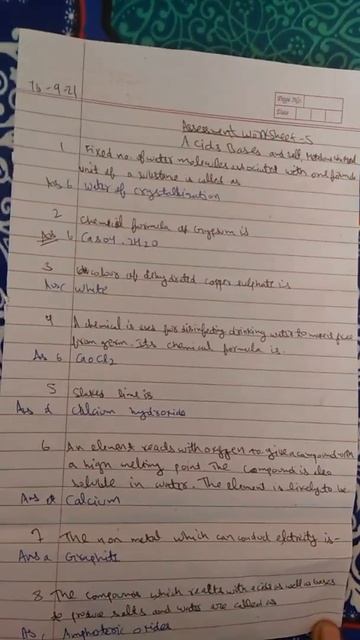 Page No.
Date
13-9-21
Assessment Worksheet-5
Acids Bases and self,
1 Fixed no. of water molecules associated with one formula
unit of a substance is called as
Ans b water of crystallization
2 Chemical formula of Gypsum is
Ans b CaSO4.2H2O
3 colour of dehydrated copper sulphate is
Ans c White
4 A chemical is used for disinfecting drinking water to make it free
from germ. Its chemical formula is.
Ans b CaOCl2
5 Slaked lime is
Ans d Calcium hydroxide
6 An element reacts with oxygen to give a compound with
a high melting point The compound is also
soluble in water. The element is likely to be
Ans Calcium
7 The non metal which can conduct elctricity is-
Ans a Graphite
8 The compounds which reacts with acid as well as bases
to produce salts and water are called as
As, Amphoteric oxides